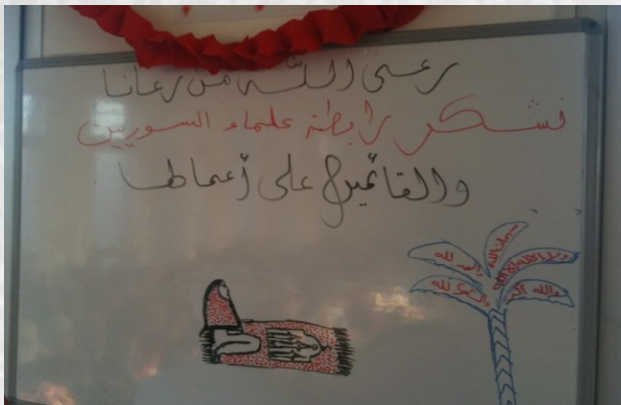 رعى الله من رعانا
نشكر رابطة علماء السوريين
والقائمين على أعمالها
سبحان الله
الحمد لله
ولا إله إلا الله
والله أكبر